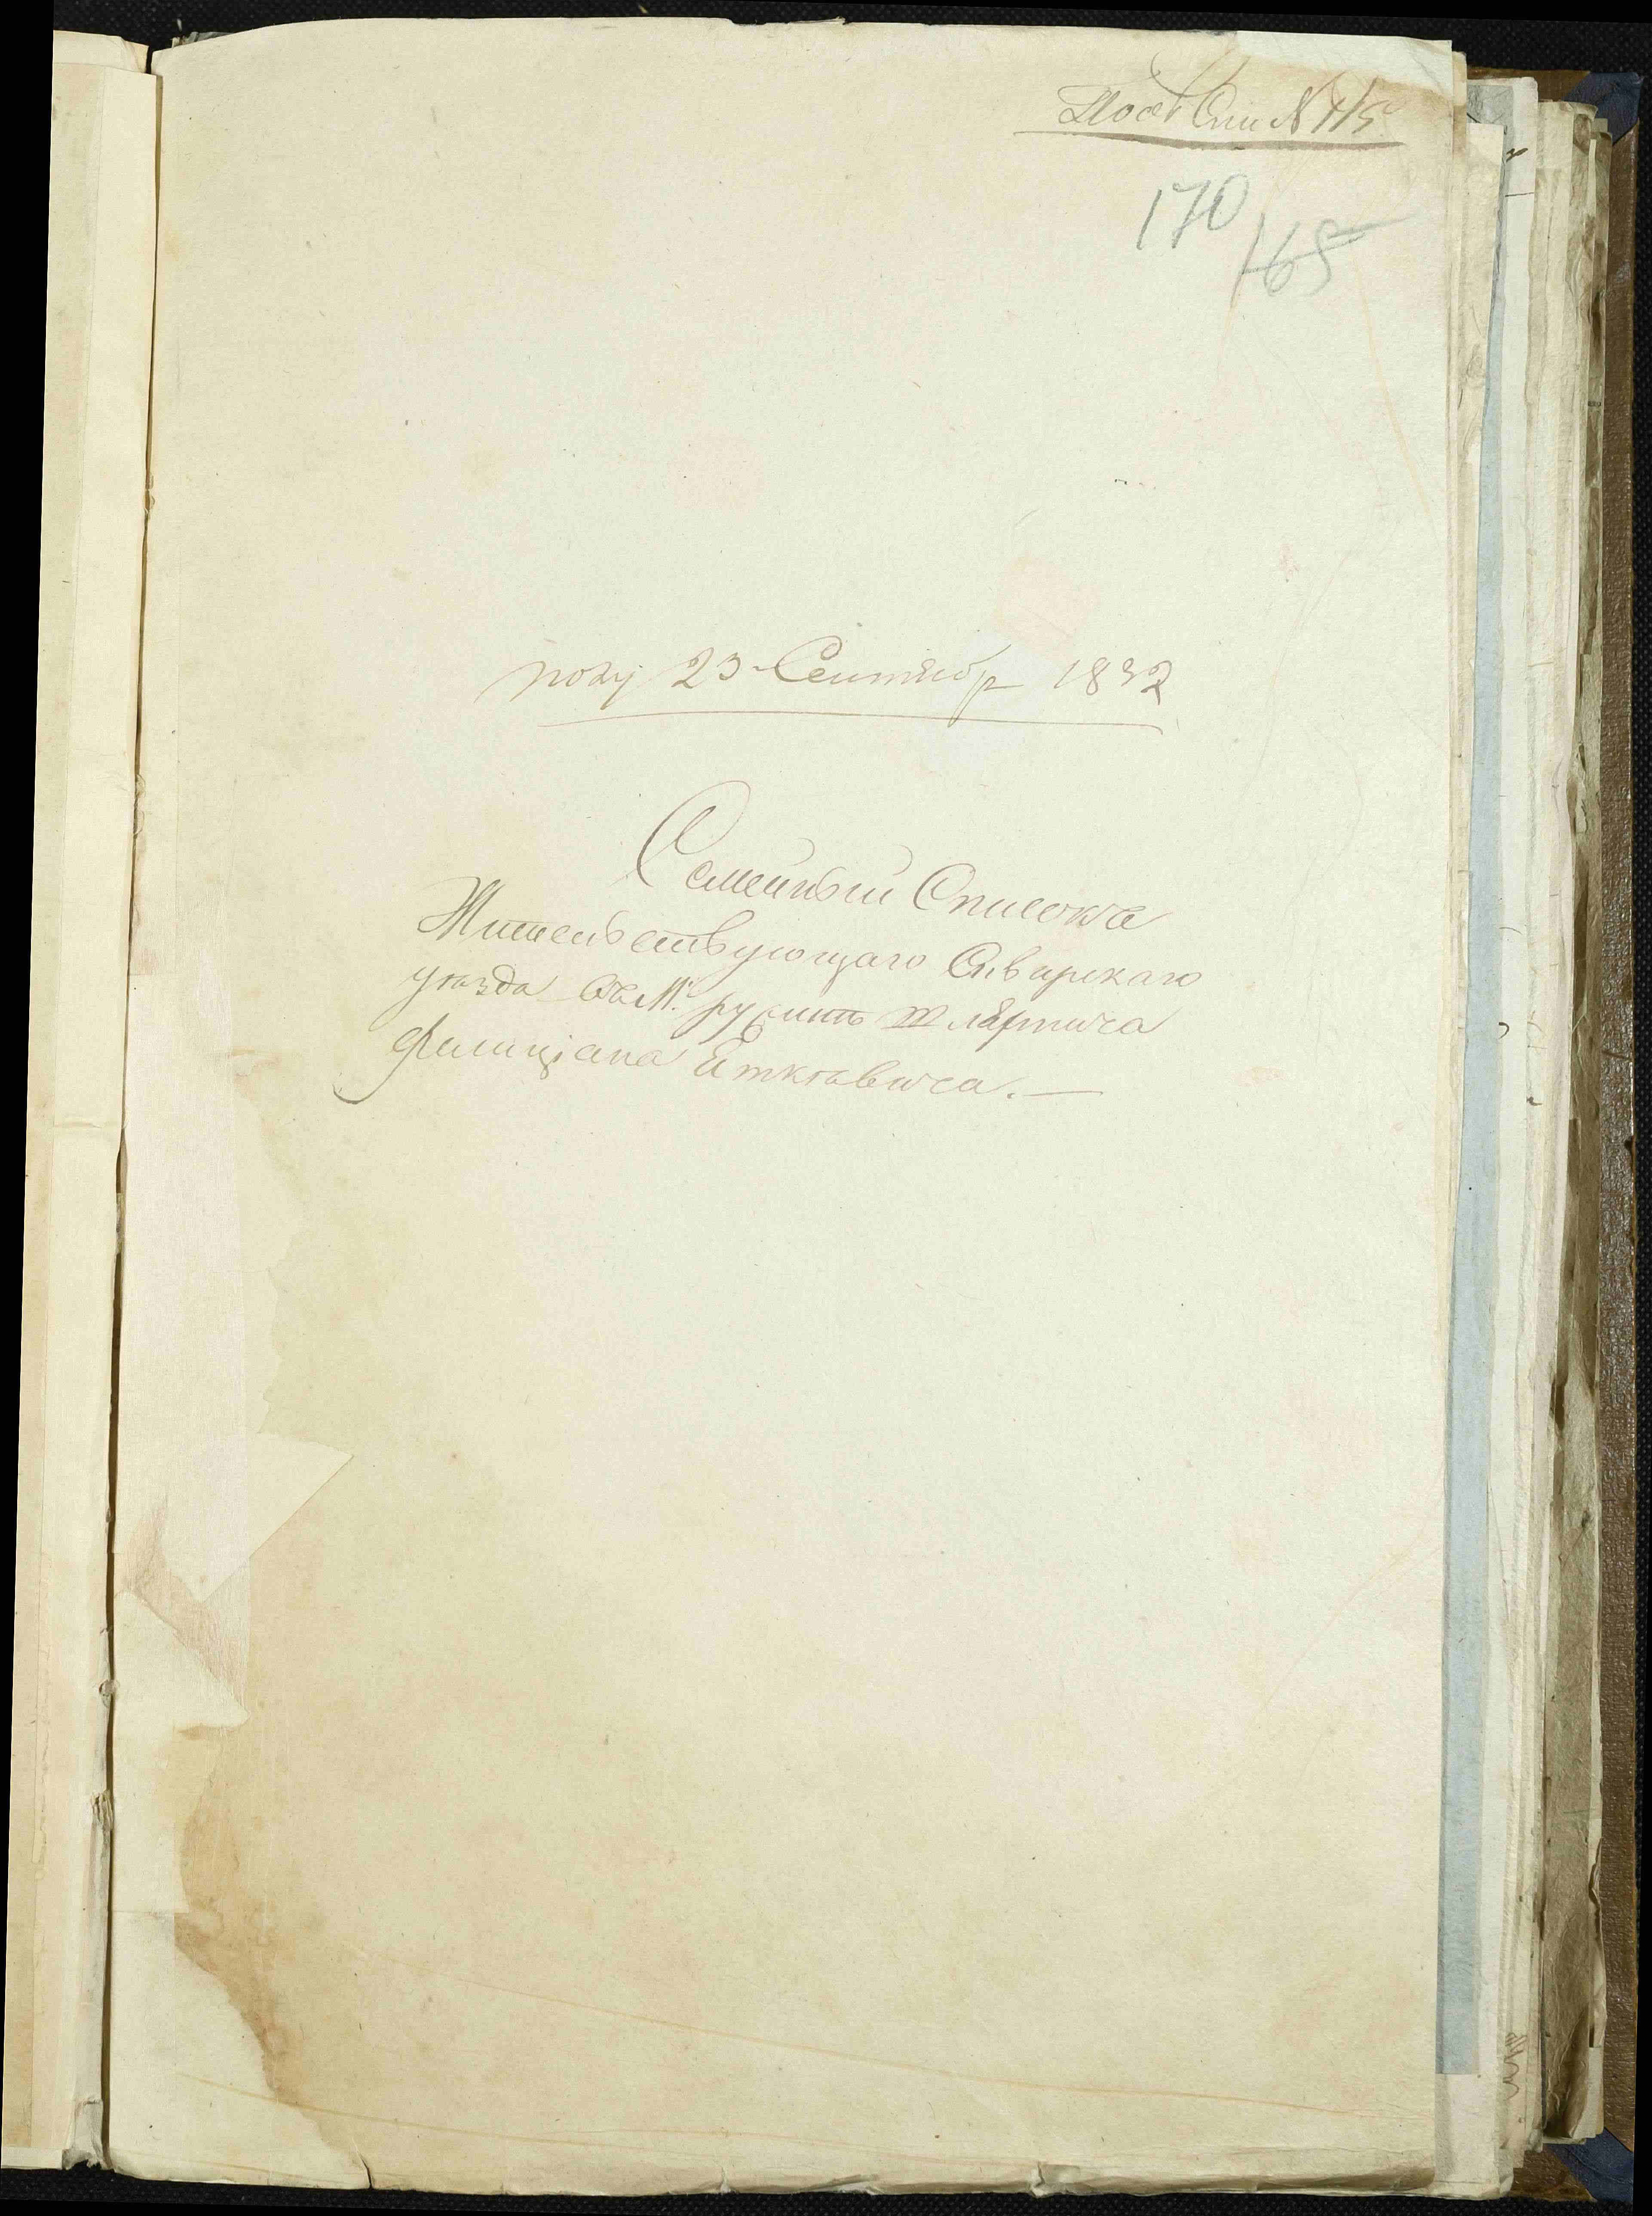 Посем Спи № 115
170
165
полу 23 Сентябр 1832
Семейный Списокъ
Жительствующаго Сквирскаго
уезда въ М. Ружинѣ Шляхтича
Фелиціана Еткевича.—